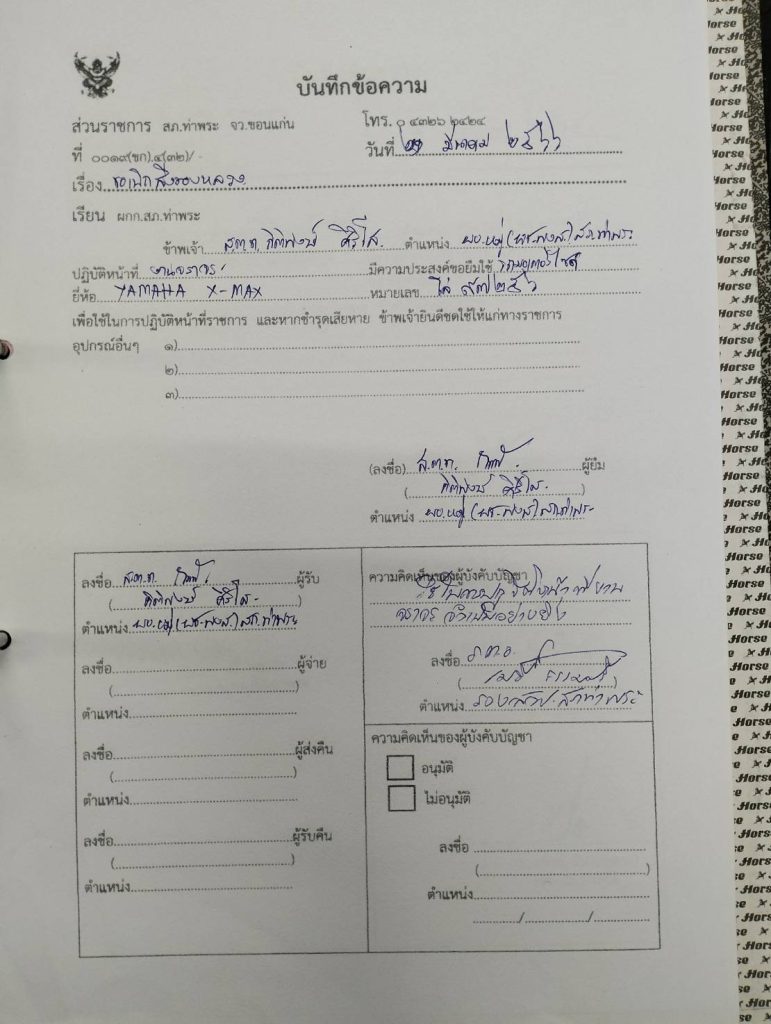 บันทึกข้อความ
ส่วนราชการ สภ.ท่าพระ จว.ขอนแก่น โทร. ๐ ๔๓๒๖ ๑๔๒๔
ที่ ๐๐๑๙(ขก).๔(๓๒)/ วันที่ มีนาคม ๒๕๖๖
เรื่อง ขอเบิกสิ่งของหลวง
เรียน ผกก.สภ.ท่าพระ
ข้าพเจ้า ส.ต.ท. กิติพงษ์ ศิริโส ตำแหน่ง ผบ.หมู่ (ผช.พงส.) สภ.ท่าพระ
ปฏิบัติหน้าที่ งานจราจร มีความประสงค์ขอยืมใช้ รถมอเตอร์ไซค์
ยี่ห้อ YAMAHA X-MAX หมายเลข โล่ ๕๗๒๕๖
เพื่อใช้ในการปฏิบัติหน้าที่ราชการ และหากชำรุดเสียหาย ข้าพเจ้ายินดีชดใช้ให้แก่ทางราชการ
อุปกรณ์อื่นๆ ๑)
๒)
๓)
(ลงชื่อ) ส.ต.ท. ผู้ยืม
( กิติพงษ์ ศิริโส )
ตำแหน่ง ผบ.หมู่ (ผช.พงส.) สภ.ท่าพระ
ลงชื่อ ส.ต.ท. ผู้รับ
( กิติพงษ์ ศิริโส )
ตำแหน่ง ผบ.หมู่ (ผช.พงส.) สภ.ท่าพระ
ลงชื่อ ผู้จ่าย
( )
ตำแหน่ง
ลงชื่อ ผู้ส่งคืน
( )
ตำแหน่ง
ลงชื่อ ผู้รับคืน
( )
ตำแหน่ง
ความคิดเห็นของผู้บังคับบัญชา
ใช้ในการปฏิบัติหน้าที่งาน
จราจร จำเป็นอย่างยิ่ง
ลงชื่อ ร.ต.อ.
( )
ตำแหน่ง รอง สวป.สภ.ท่าพระ
ความคิดเห็นของผู้บังคับบัญชา
อนุมัติ
ไม่อนุมัติ
ลงชื่อ
( )
ตำแหน่ง
/ /
Horse